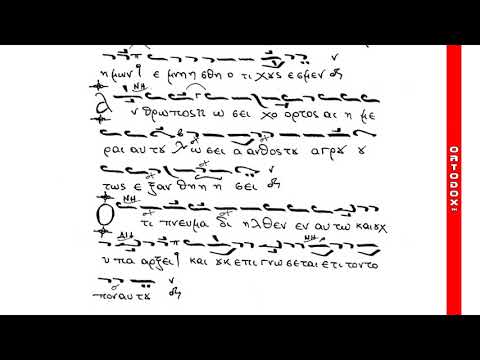 η μων ε μνη σθη ο τι χȣς ε σμεν
ΝΗ
Α ν θρωπος ω σει χο ορτος αι η με
ραι αυ τȣ ω σει α ανθος τȣ α γρȣ ȣ
τως ε ξαν θη η η σει
ΝΗ
Ο τι πνευμα δι ηλθεν εν αυ τω και ȣχ
ΔΙ ΝΗ
υ πα αρξει και ȣκ επι γνω σεται ετι τον το
πον αυ τȣ
ORTODOX